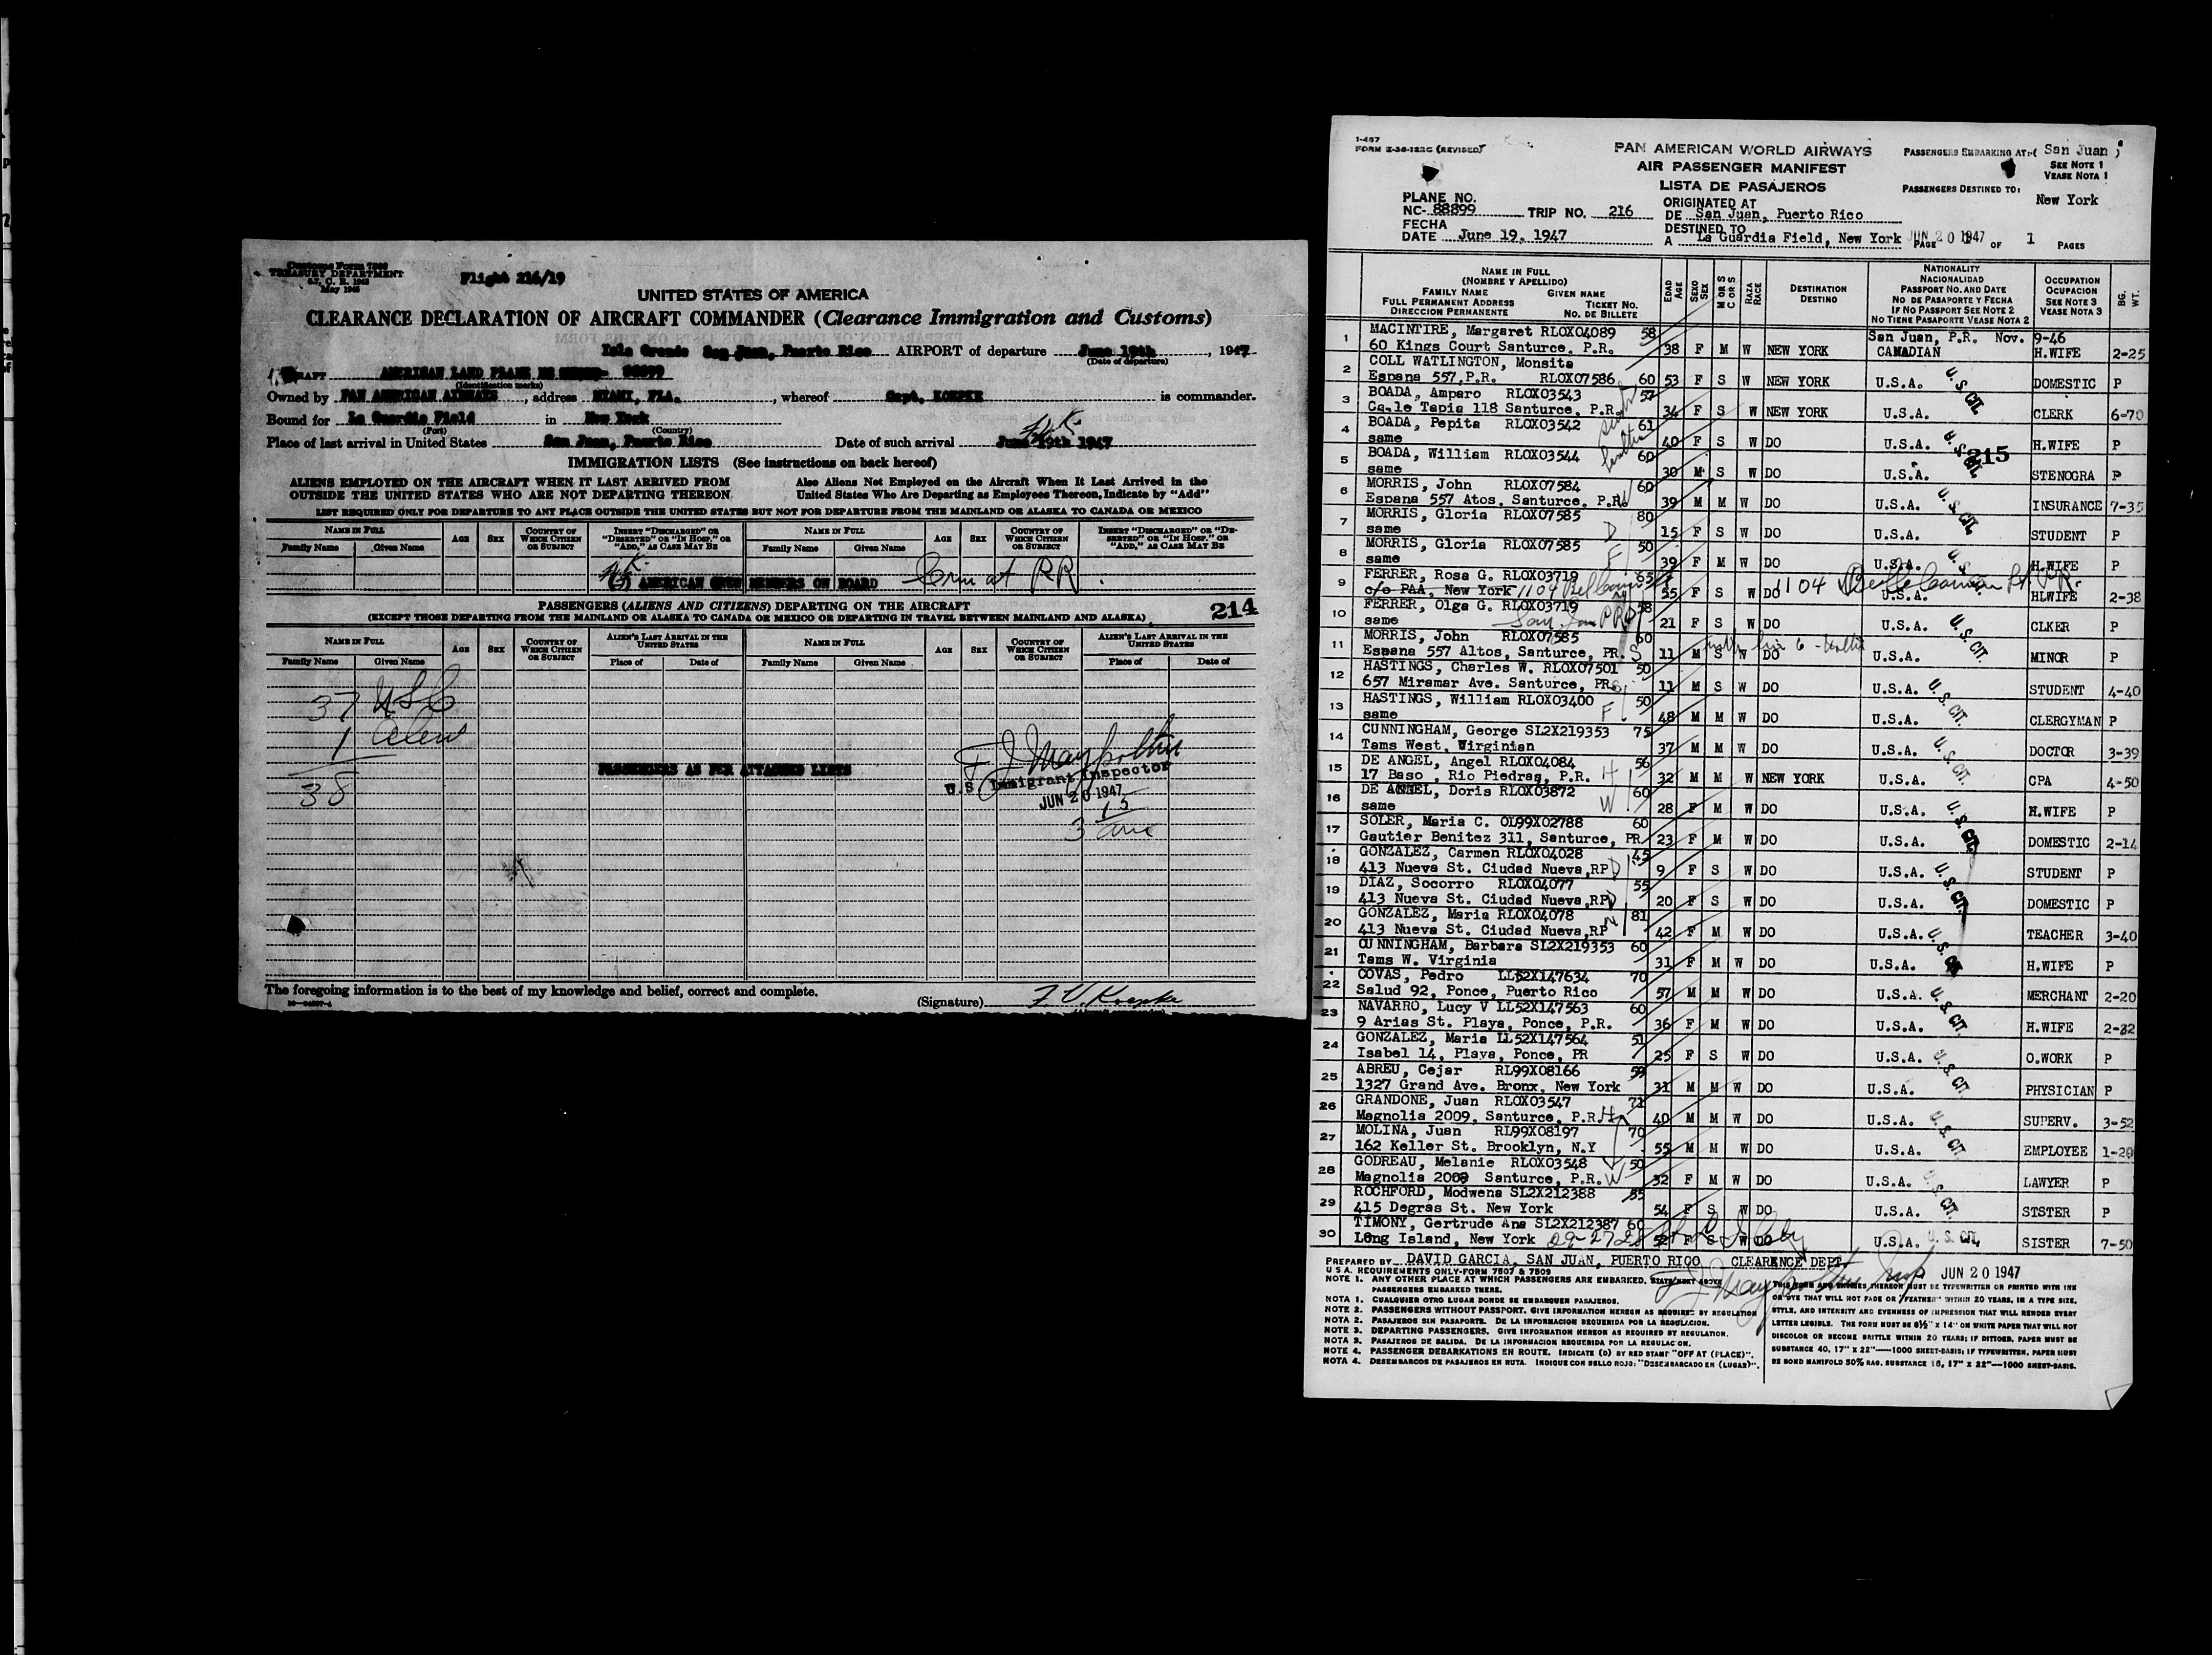 Customs Form 7509
TREASURY DEPARTMENT
Flight 216/19
UNITED STATES OF AMERICA
CLEARANCE DECLARATION OF AIRCRAFT COMMANDER (Clearance Immigration and Customs)
Isla Grande San Juan, Puerto Rico AIRPORT of departure June 19th, 1947
(Date of departure)
AMERICAN LAND PLANE 88899
(Identification marks)
Owned by PAN AMERICAN AIRWAYS, address MIAMI, FLA., whereof Capt. KOEPKE is commander.
Bound for La Guardia Field in New York
(Port) (Country)
Place of last arrival in United States San Juan, Puerto Rico Date of such arrival June 19th 1947
IMMIGRATION LISTS (See instructions on back hereof)
ALIENS EMPLOYED ON THE AIRCRAFT WHEN IT LAST ARRIVED FROM OUTSIDE THE UNITED STATES WHO ARE NOT DEPARTING THEREON
Also Aliens Not Employed on the Aircraft When It Last Arrived in the United States Who Are Departing as Employees Thereon, Indicate by "Add"
LIST REQUIRED ONLY FOR DEPARTURE TO ANY PLACE OUTSIDE THE UNITED STATES BUT NOT FOR DEPARTURE FROM THE MAINLAND OR ALASKA TO CANADA OR MEXICO
NAME IN FULL AGE SEX COUNTRY OF WHICH CITIZEN OR SUBJECT INSERT "DISCHARGED" OR "DESERTED" OR "IN HOSP." OR "ADD," AS CASE MAY BE NAME IN FULL AGE SEX COUNTRY OF WHICH CITIZEN OR SUBJECT INSERT "DISCHARGED" OR "DESERTED" OR "IN HOSP." OR "ADD," AS CASE MAY BE
Family Name Given Name Family Name Given Name
AMERICAN CREW MEMBERS ON BOARD
PASSENGERS (ALIENS AND CITIZENS) DEPARTING ON THE AIRCRAFT
(EXCEPT THOSE DEPARTING FROM THE MAINLAND OR ALASKA TO CANADA OR MEXICO OR DEPARTING IN TRAVEL BETWEEN MAINLAND AND ALASKA)
214
NAME IN FULL AGE SEX COUNTRY OF WHICH CITIZEN OR SUBJECT ALIEN'S LAST ARRIVAL IN THE UNITED STATES NAME IN FULL AGE SEX COUNTRY OF WHICH CITIZEN OR SUBJECT ALIEN'S LAST ARRIVAL IN THE UNITED STATES
Family Name Given Name Place of Date of Family Name Given Name Place of Date of
37 USC
1 Alien
38
PASSENGERS AS PER ATTACHED LISTS
U.S. Immigrant Inspector
JUN 20 1947
The foregoing information is to the best of my knowledge and belief, correct and complete.
(Signature)
1-497
FORM Z-36-122C (REVISED)
PAN AMERICAN WORLD AIRWAYS
AIR PASSENGER MANIFEST
LISTA DE PASAJEROS
PASSENGERS EMBARKING AT:- ( San Juan )
SEE NOTE 1
VEASE NOTA 1
PASSENGERS DESTINED TO:
New York
PLANE NO.
NC- 88899 TRIP NO. 216
ORIGINATED AT
DE San Juan, Puerto Rico
FECHA
DATE June 19, 1947
DESTINED TO
A La Guardia Field, New York
JUN 20 1947
PAGE OF 1 PAGES
NAME IN FULL
(NOMBRE Y APELLIDO)
FAMILY NAME GIVEN NAME
FULL PERMANENT ADDRESS TICKET NO.
DIRECCION PERMANENTE NO. DE BILLETE
EDAD AGE SEXO SEX M OR S C OR S RAZA RACE DESTINATION DESTINO
NATIONALITY
NACIONALIDAD
PASSPORT NO. AND DATE
NO DE PASAPORTE Y FECHA
IF NO PASSPORT SEE NOTE 2
NO TIENE PASAPORTE VEASE NOTA 2
OCCUPATION
OCUPACION
SEE NOTE 3
VEASE NOTA 3
BG. WT.
1 MACINTIRE, Margaret RLOX04089 58 San Juan, P.R. Nov. 9-46
60 Kings Court Santurce, P.R. 38 F M W NEW YORK CANADIAN H.WIFE 2-25
2 COLL WATLINGTON, Monsita
Espana 557,P.R. RLOX07586 60 53 F S W NEW YORK U.S.A. DOMESTIC P
3 BOADA, Amparo RLOX03543 57
Calle Tapia 118 Santurce, P.R. 34 F S W NEW YORK U.S.A. CLERK 6-70
4 BOADA, Pepita RLOX03542 61
same 40 F S W DO U.S.A. H.WIFE P
215
5 BOADA, William RLOX03544 60
same 30 M S W DO U.S.A. STENOGRA P
6 MORRIS, John RLOX07584 60
Espana 557 Atos, Santurce, P.R. 39 M M W DO U.S.A. INSURANCE 7-35
7 MORRIS, Gloria RLOX07585 80
same 15 F S W DO U.S.A. STUDENT P
8 MORRIS, Gloria RLOX07585 50
same 39 F M W DO U.S.A. H.WIFE P
9 FERRER, Rosa G. RLOX03719 65
c/o PAA, New York 55 F S W DO U.S.A. HLWIFE 2-38
10 FERRER, Olga G. RLOX03719 58
same 21 F S W DO U.S.A. CLKER P
11 MORRIS, John RLOX07585 60
Espana 557 Altos, Santurce, PR. 11 M S W DO U.S.A. MINOR P
12 HASTINGS, Charles W. RLOX07501 50
657 Miramar Ave. Santurce, PR 11 M S W DO U.S.A. STUDENT 4-40
13 HASTINGS, William RLOX03400 50
same 48 M M W DO U.S.A. CLERGYMAN P
14 CUNNINGHAM, George SL2X219353 75
Tams West, Wirginian 37 M M W DO U.S.A. DOCTOR 3-39
15 DE ANGEL, Angel RLOX04084 56
17 Baso , Rio Piedras, P.R. 32 M M W NEW YORK U.S.A. CPA 4-50
16 DE ANGEL, Doris RLOX03872 60
same 28 F M W DO U.S.A. H.WIFE P
17 SOLER, Maria C. OL99X02788 60
Gautier Benitez 311, Santurce, PR 23 F M W DO U.S.A. DOMESTIC 2-14
18 GONZALEZ, Carmen RLOX04028 45
413 Nueva St. Ciudad Nueva,RP 9 F S W DO U.S.A. STUDENT P
19 DIAZ, Socorro RLOX04077 55
413 Nueva St. Ciudad Nueva,RP 20 F S W DO U.S.A. DOMESTIC P
20 GONZALEZ, Maria RLOX04078 81
413 Nueva St. Ciudad Nueva,RP 42 F M W DO U.S.A. TEACHER 3-40
21 CUNNINGHAM, Barbara SL2X219353 60
Tams W. Virginia 31 F M W DO U.S.A. H.WIFE P
22 COVAS, Pedro LL52X147634 70
Salud 92, Ponce, Puerto Rico 57 M M W DO U.S.A. MERCHANT 2-20
23 NAVARRO, Lucy V LL52X147563 60
9 Arias St. Playa, Ponce, P.R. 36 F M W DO U.S.A. H.WIFE 2-32
24 GONZALEZ, Maria LL52X147564 51
Isabel 14, Playa, Ponce, PR 25 F S W DO U.S.A. O.WORK P
25 ABREU, Cejar RL99X08166 59
1327 Grand Ave. Bronx, New York 31 M M W DO U.S.A. PHYSICIAN P
26 GRANDONE, Juan RLOX03547 71
Magnolia 2009, Santurce, P.R. 40 M M W DO U.S.A. SUPERV. 3-52
27 MOLINA, Juan RL99X08197 70
162 Keller St. Brooklyn, N.Y 55 M M W DO U.S.A. EMPLOYEE 1-20
28 GODREAU, Melanie RLOX03548 50
Magnolia 2009 Santurce, P.R. 32 F M W DO U.S.A. LAWYER P
29 ROCHFORD, Modwena SL2X212388 55
415 Degras St. New York 54 F S W DO U.S.A. STSTER P
30 TIMONY, Gertrude Ana SL2X212387 60
Long Island, New York 52 F S W DO U.S.A. U.S. CIT. SISTER 7-50
PREPARED BY DAVID GARCIA, SAN JUAN, PUERTO RICO CLEARENCE DEPT.
JUN 20 1947
U S A. REQUIREMENTS ONLY-FORM 7507 & 7509
NOTE 1. ANY OTHER PLACE AT WHICH PASSENGERS ARE EMBARKED, STATE NEXT ABOVE PASSENGERS EMBARKED THERE.
NOTA 1. CUALQUIER OTRO LUGAR DONDE SE EMBARQUEN PASAJEROS.
NOTE 2. PASSENGERS WITHOUT PASSPORT. GIVE INFORMATION HEREON AS REQUIRED BY REGULATION
NOTA 2. PASAJEROS SIN PASAPORTE. DE LA INFORMACION REQUERIDA POR LA REGULACION.
NOTE 3. DEPARTING PASSENGERS. GIVE INFORMATION HEREON AS REQUIRED BY REGULATION.
NOTA 3. PASAJEROS DE SALIDA. DE LA INFORMACION REQUERIDA POR LA REGULACION.
NOTE 4. PASSENGER DEBARKATIONS EN ROUTE. INDICATE (D) BY RED STAMP "OFF AT (PLACE)".
NOTA 4. DESEMBARCOS DE PASAJEROS EN RUTA. INDIQUE CON SELLO ROJO: "DESEMBARCADO EN (LUGAR)".
THIS FORM AND ENTRIES THEREON MUST BE TYPEWRITTEN OR PRINTED WITH INK
OR DYE THAT WILL NOT FADE OR "FEATHER" WITHIN 20 YEARS, IN A TYPE SIZE,
STYLE, AND INTENSITY AND EVENNESS OF IMPRESSION THAT WILL RENDER EVERY
LETTER LEGIBLE. THE FORM MUST BE 8½" X 14" ON WHITE PAPER THAT WILL NOT
DISCOLOR OR BECOME BRITTLE WITHIN 20 YEARS; IF DITTOED, PAPER MUST BE
SUBSTANCE 40, 17" X 22"—1000 SHEET-BASIS; IF TYPEWRITTEN, PAPER MUST
BE BOND MANIFOLD 50% RAG, SUBSTANCE 16, 17" X 22"—1000 SHEET-BASIS.